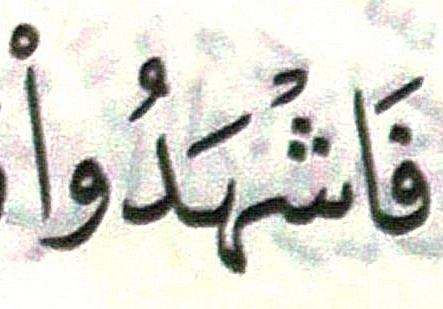 فَاشْهَدُواْ